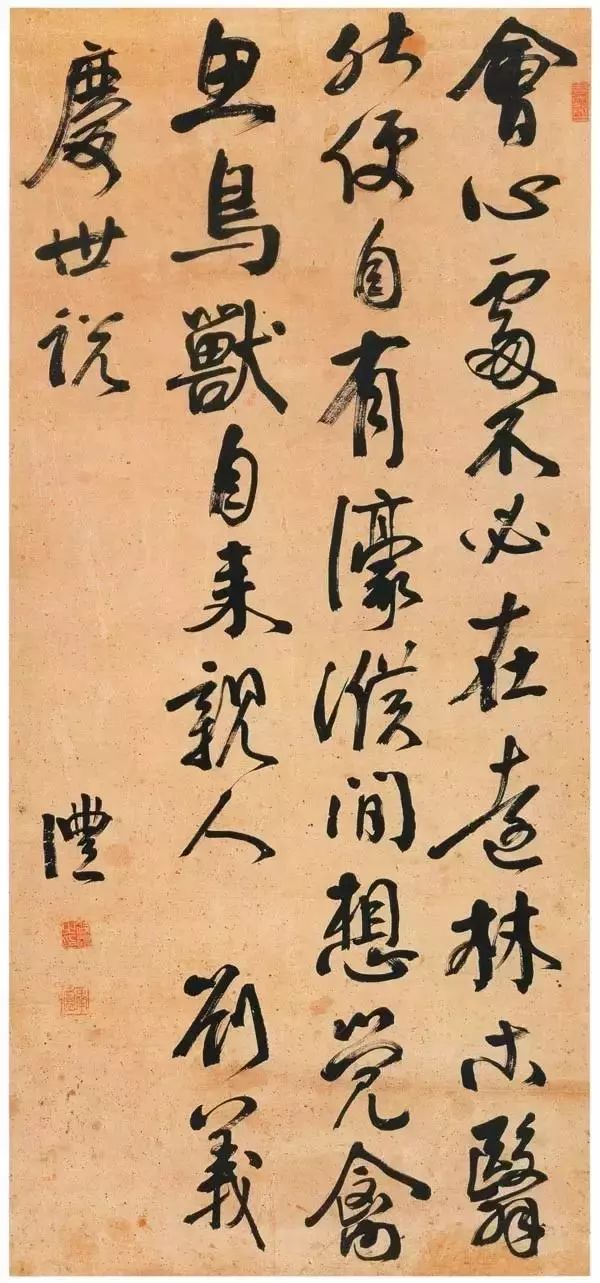 會心處不必在遠林木翳
然便自有濠濮間想覺禽
魚鳥獸自來親人 劉義
慶世說